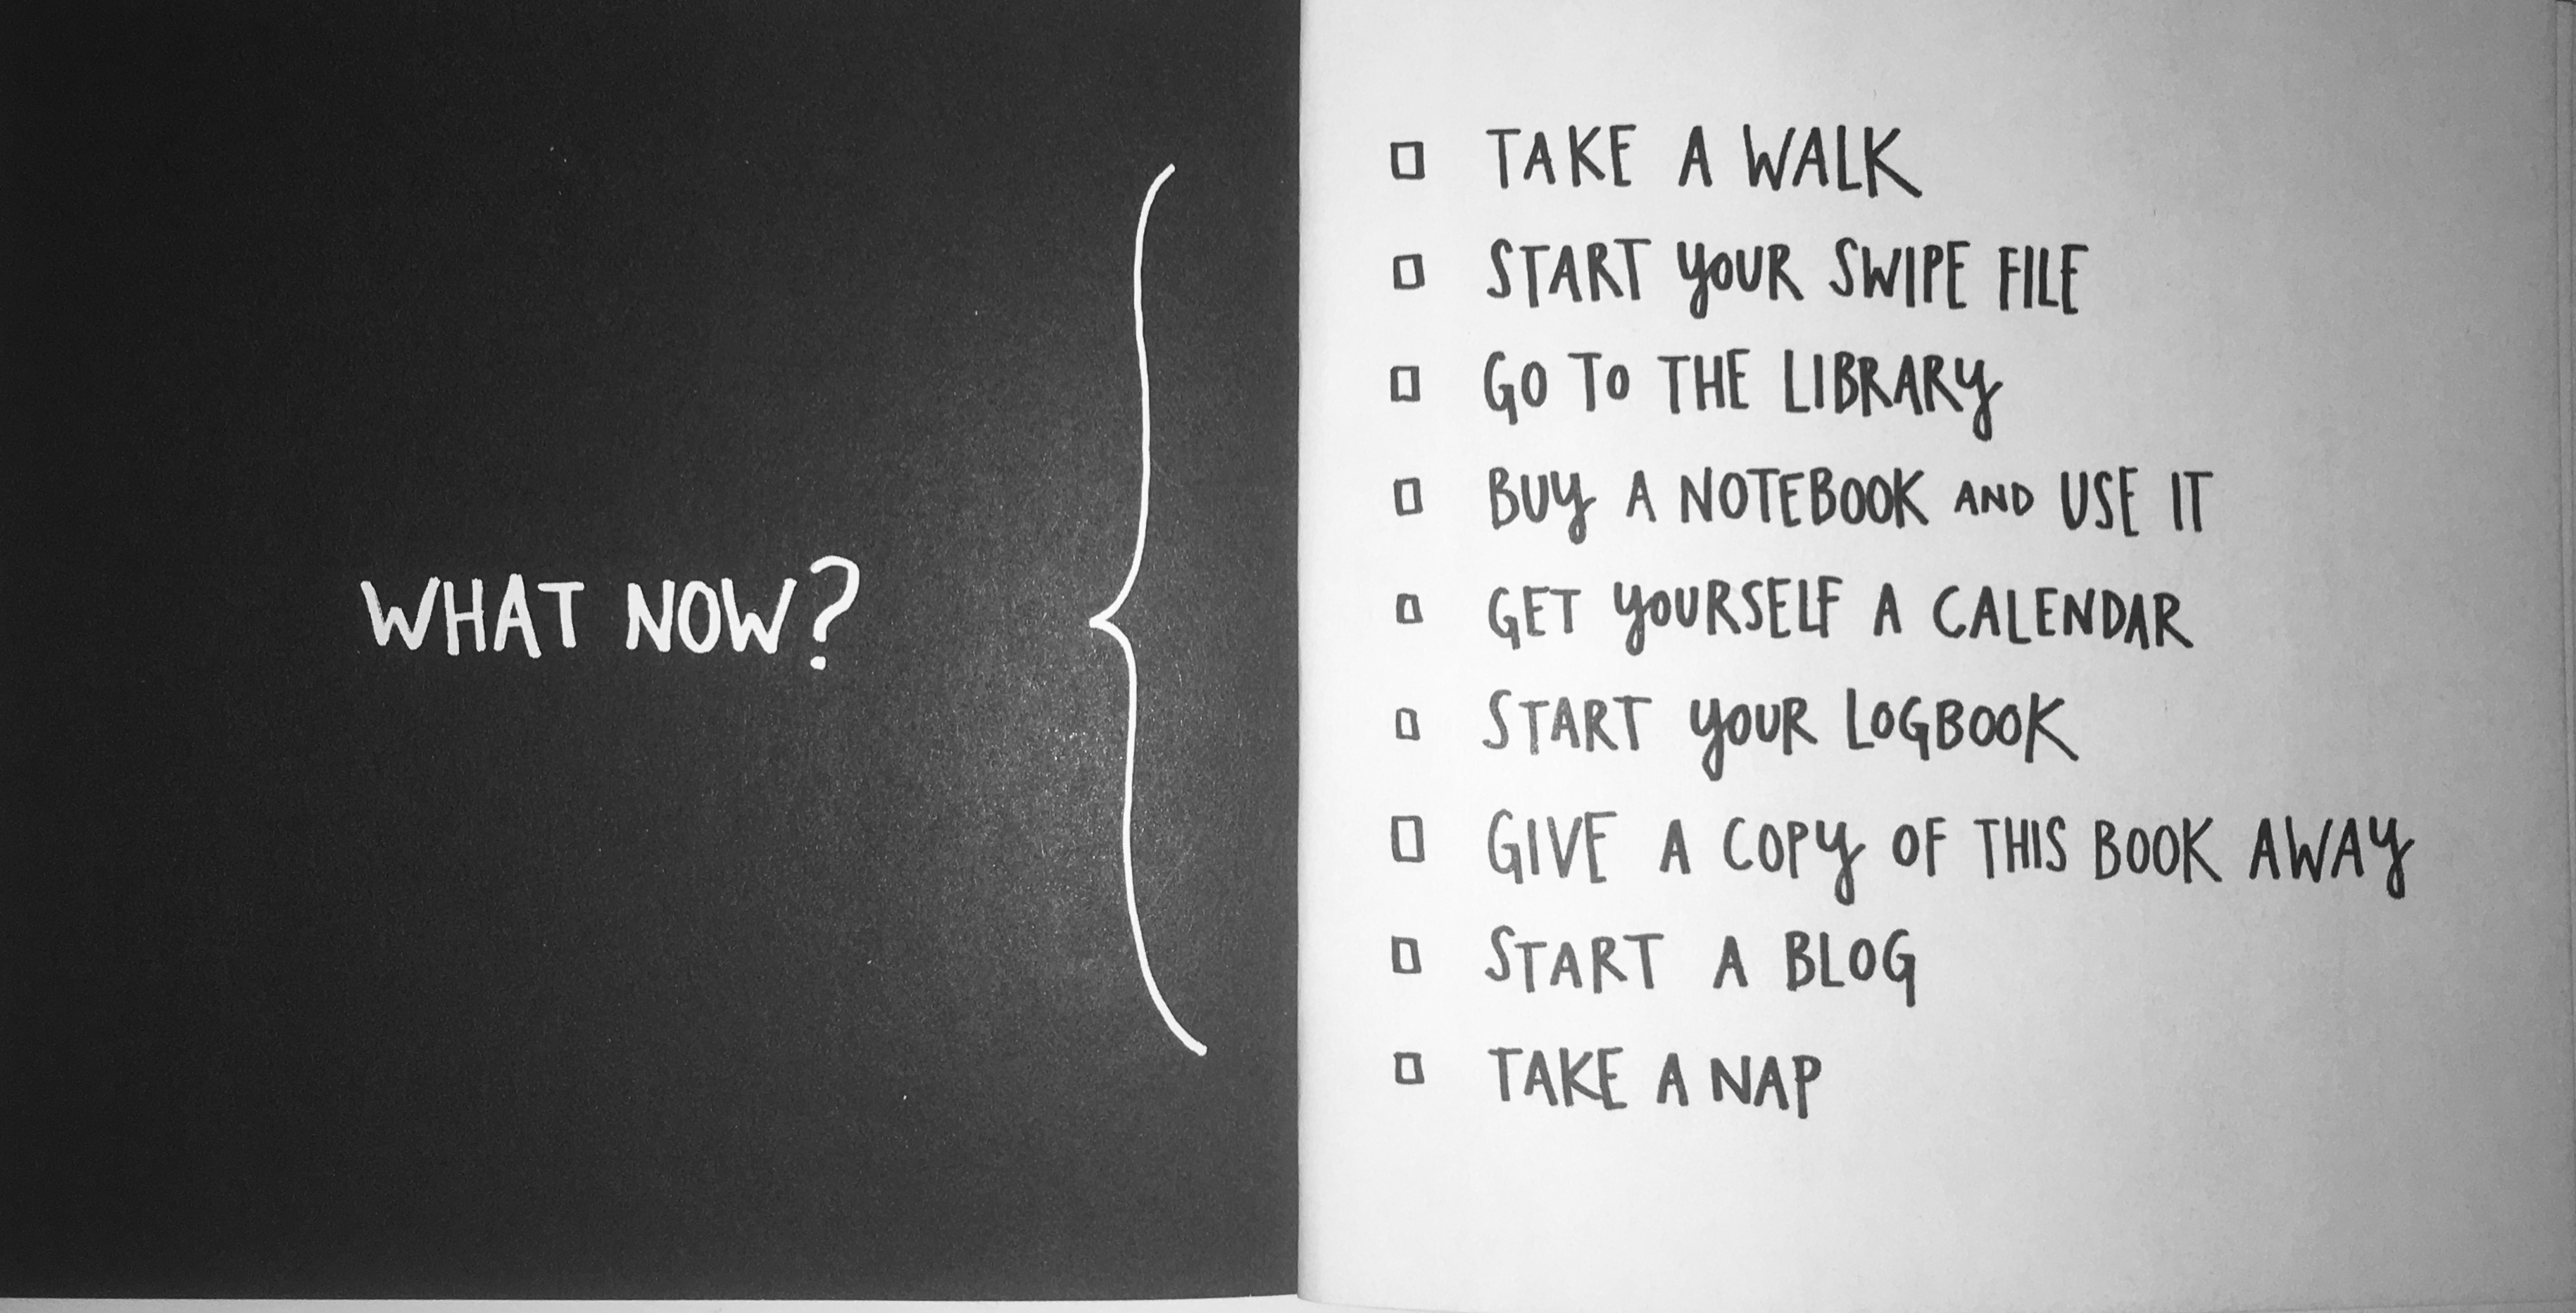 WHAT NOW?
TAKE A WALK
START YOUR SWIPE FILE
GO TO THE LIBRARY
BUY A NOTEBOOK AND USE IT
GET YOURSELF A CALENDAR
START YOUR LOGBOOK
GIVE A COPY OF THIS BOOK AWAY
START A BLOG
TAKE A NAP